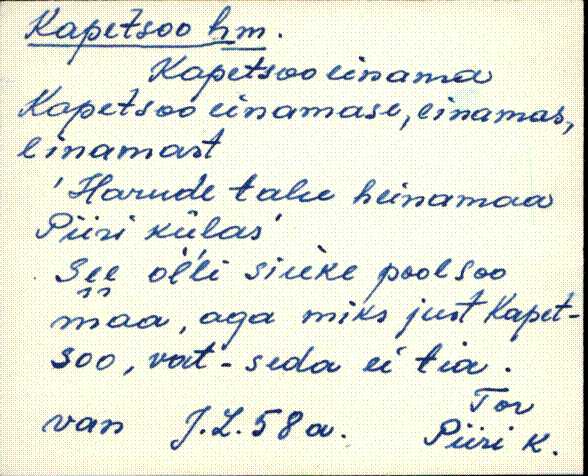 Kapetsoo hm.
Kapetsoo einama
Kapetsoo einamase, einamas,
einamast
'Harude talu heinamaa
Piiri külas'
See ol'l'i siuke poolsoo
maa, aga miks just Kapet-
soo, vat - seda ei tia.
van J.L. 58 a. Tor
Piiri k.